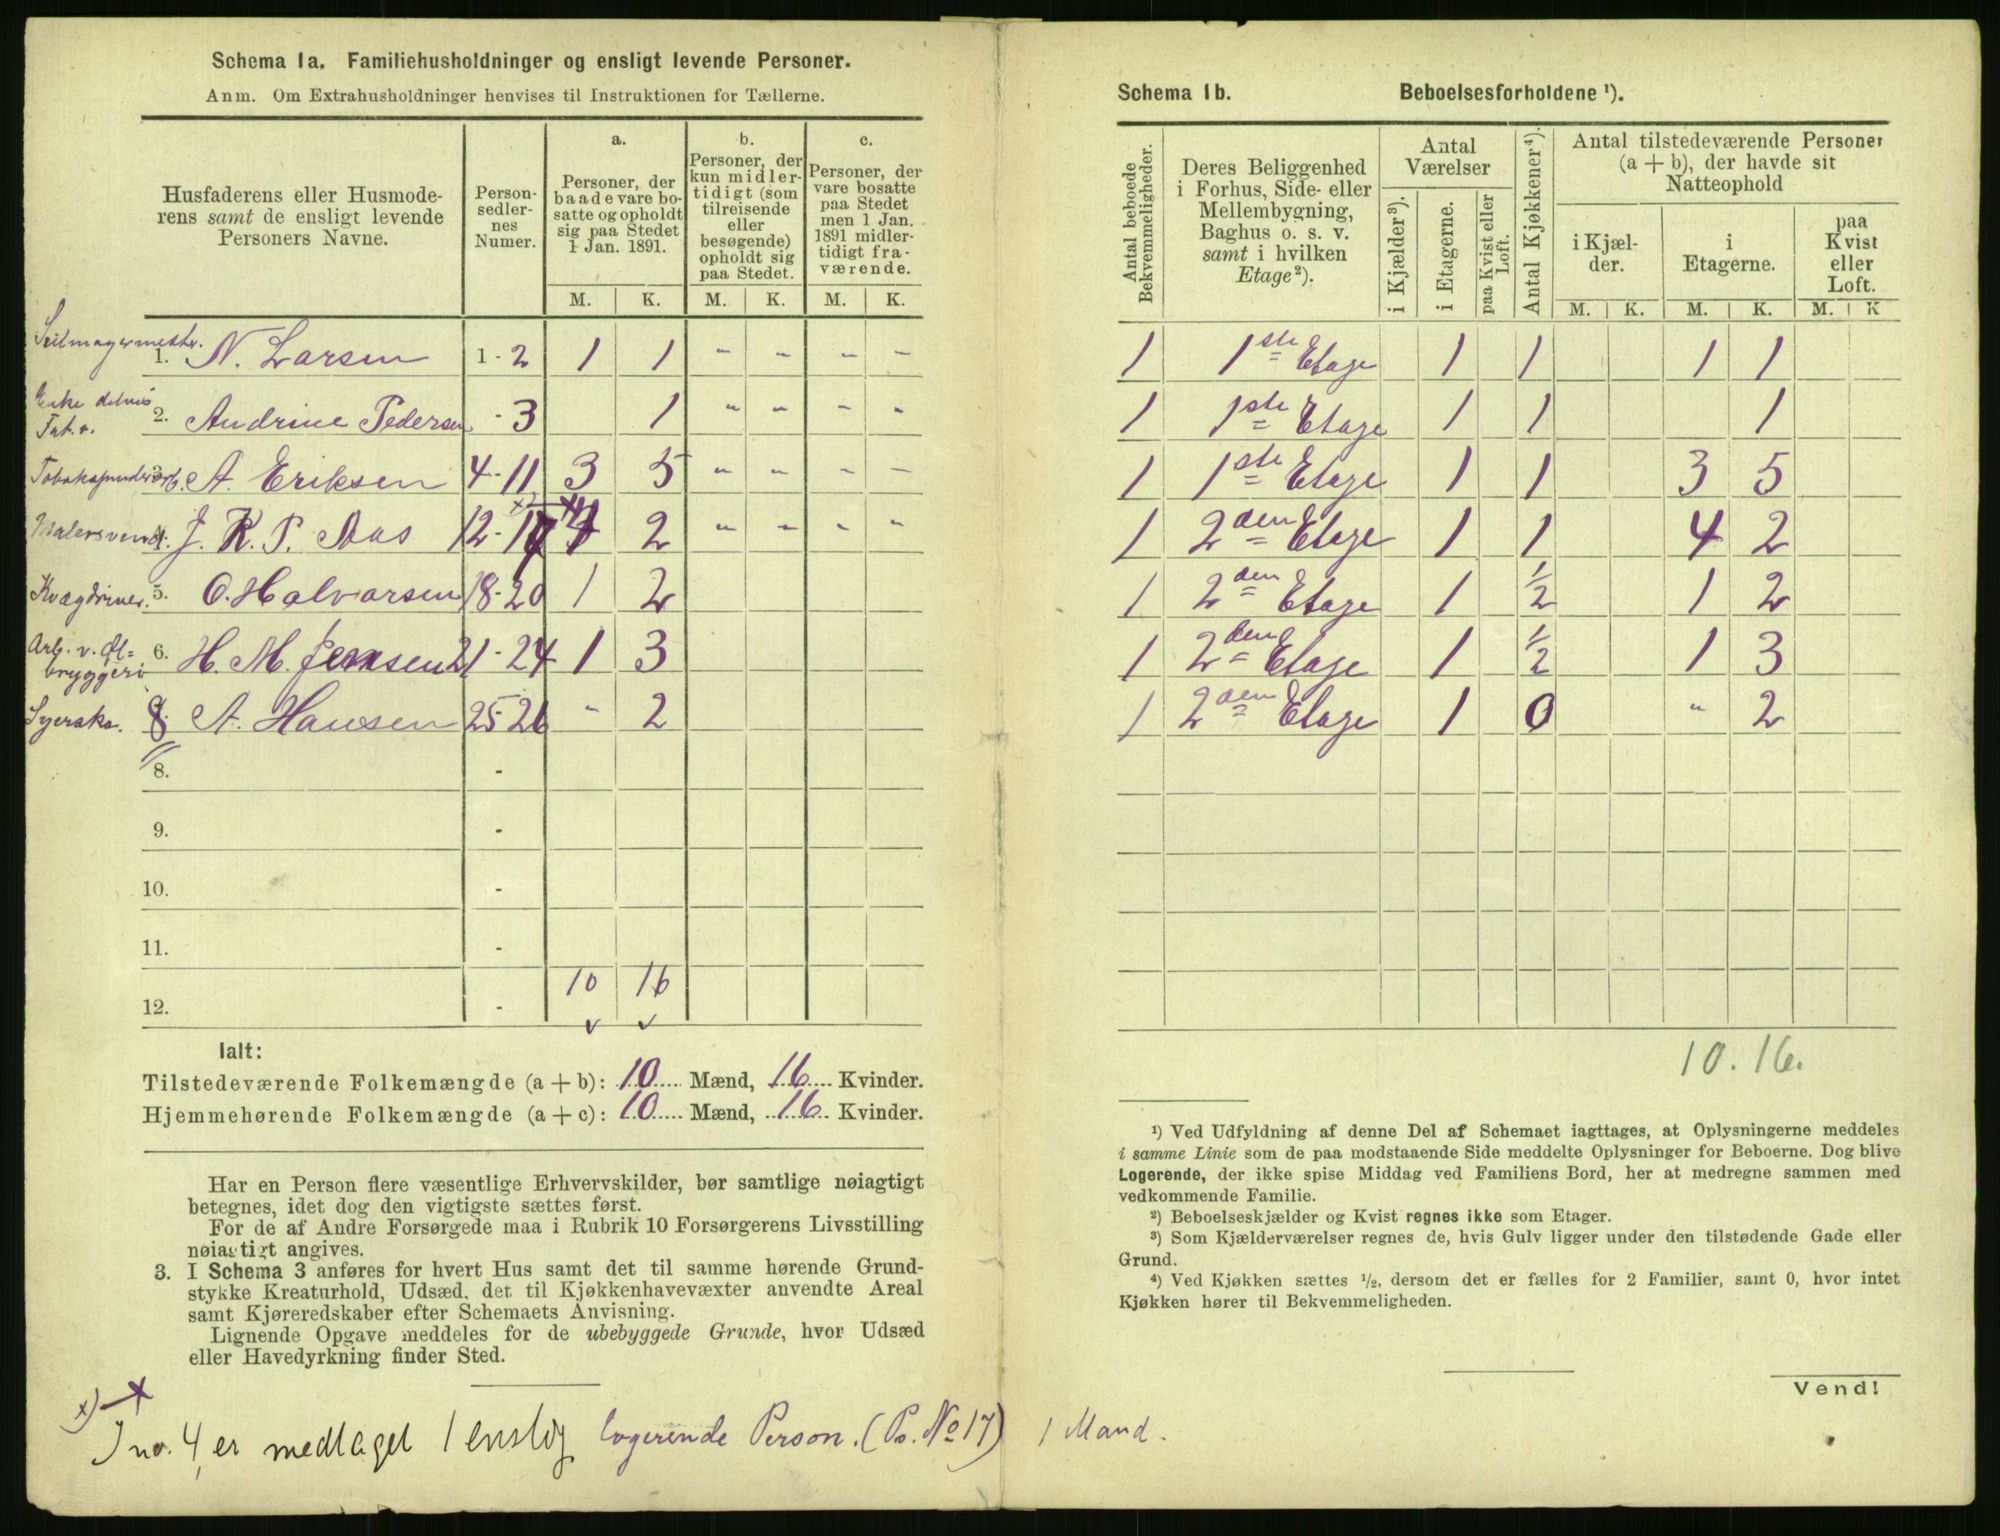 Schema 1a. Familiehusholdninger og ensligt levende Personer.
Anm. Om Extrahusholdninger henvises til Instruktionen for Tællerne.
Husfaderens eller Husmode-
rens samt de ensligt levende
Personers Navne.
Person-
sedler-
nes
Numer.
a.
Personer, der
baade vare bo-
satte og opholdt
sig paa Stedet
1 Jan. 1891.
b.
Personer, der
kun midler-
tidigt (som
tilreisende
eller
besøgende)
opholdt sig
paa Stedet.
c.
Personer, der
vare bosatte
paa Stedet
men 1 Jan.
1891 midler-
tidigt fra-
værende.
M. K. M. K. M. K.
Seilmagermestr.
1. N. Larsen 1 - 2 1 1 " " " "
Enke delvis
Fat.v.
2. Andrine Pedersen - 3 1 " " " "
3. A. Eriksen 4 - 11 3 5 " " " "
Malersvend
4. J. K. P. Aas 12 - 17 x) 4 2 " " " "
Kvægdriver.
5. O. Halvorsen 18 - 20 1 2
Arb. v. Øl=
bryggeri
6. H. M. Jensen 21 - 24 1 3
Syerske.
8 A. Hansen 25 26 " 2
8. -
9. -
10. -
11. -
10 16
12. -
Ialt:
Tilstedeværende Folkemængde (a + b): 10 Mænd, 16 Kvinder.
Hjemmehørende Folkemængde (a + c): 10 Mænd, 16 Kvinder.
Har en Person flere væsentlige Erhvervskilder, bør samtlige nøiagtigt
betegnes, idet dog den vigtigste sættes først.
For de af Andre Forsørgede maa i Rubrik 10 Forsørgerens Livsstilling
nøiagtigt angives.
3. I Schema 3 anføres for hvert Hus samt det til samme hørende Grund-
stykke Kreaturhold, Udsæd, det til Kjøkkenhavevæxter anvendte Areal
samt Kjøreredskaber efter Schemaets Anvisning.
Lignende Opgave meddeles for de ubebyggede Grunde, hvor Udsæd
eller Havedyrkning finder Sted.
x)
I no. 4 er medtaget 1 enslig logerende Person. (Ps. No 17) 1 Mand.
Schema 1b. Beboelsesforholdene ¹).
Antal beboede
Bekvemmeligheder.
Deres Beliggenhed
i Forhus, Side- eller
Mellembygning,
Baghus o. s. v.
samt i hvilken
Etage²).
Antal
Værelser
i Kjælder³).
i Etagerne.
paa Kvist eller
Loft.
Antal Kjøkkener⁴).
Antal tilstedeværende Personer
(a + b), der havde sit
Natteophold
i Kjæl-
der.
i
Etagerne.
paa
Kvist
eller
Loft.
M. K. M. K. M. K
1 1ste Etage 1 1 1 1
1 1ste Etage 1 1 1
1 1ste Etage 1 1 3 5
1 2den Etage 1 1 4 2
1 2den Etage 1 1/2 1 2
1 2den Etage 1 1/2 1 3
1 2den Etage 1 0 " 2
10. 16.
¹) Ved Udfyldning af denne Del af Schemaet iagttages, at Oplysningerne meddeles
i samme Linie som de paa modstaaende Side meddelte Oplysninger for Beboerne. Dog blive
Logerende, der ikke spise Middag ved Familiens Bord, her at medregne sammen med
vedkommende Familie.
²) Beboelseskjælder og Kvist regnes ikke som Etager.
³) Som Kjælderværelser regnes de, hvis Gulv ligger under den tilstødende Gade eller
Grund.
⁴) Ved Kjøkken sættes ½, dersom det er fælles for 2 Familier, samt 0, hvor intet
Kjøkken hører til Bekvemmeligheden.
Vend!